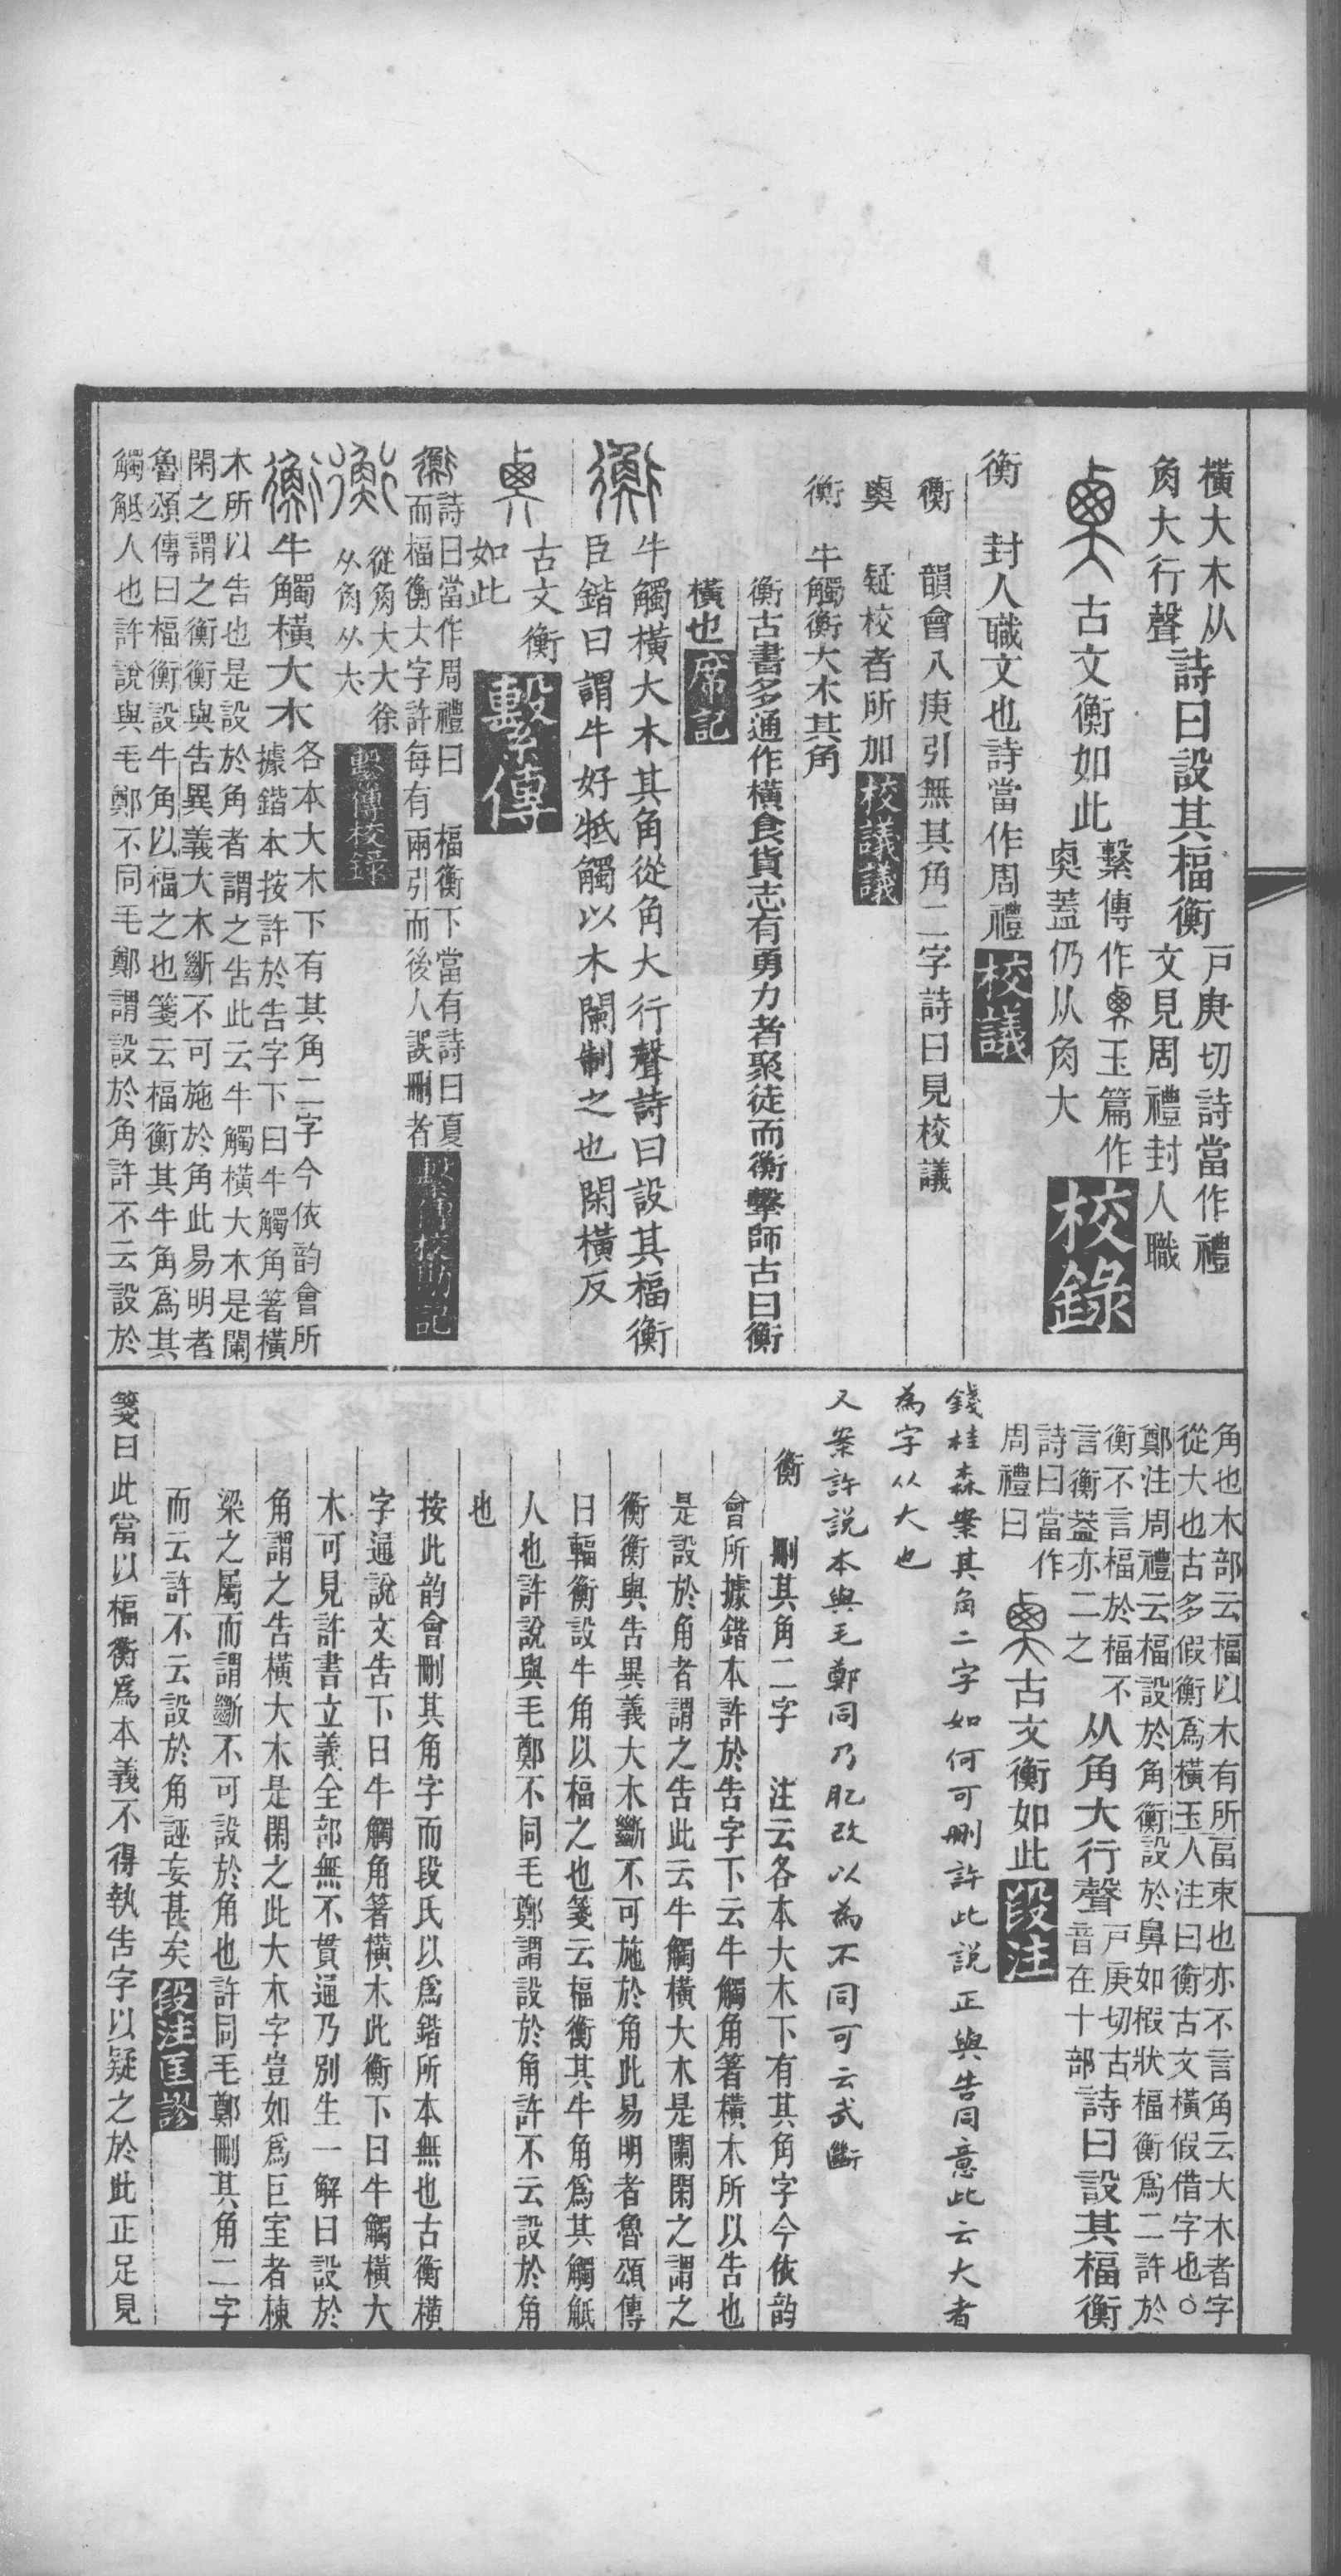 橫大木从
角大行聲
詩曰設其楅衡
戶庚切詩當作禮
文見周禮封人職
古文衡如此
繫傳作𠔤玉篇作
奧蓋仍从角大
校錄
衡 封人職文也詩當作周禮 校議
衡 韻會八庚引無其角二字詩曰見校議
奧 疑校者所加 校議議
衡 牛觸衡大木其角
衡古書多通作橫食貨志有勇力者聚徒而衡擊師古曰衡
橫也 席記
牛觸橫大木其角從角大行聲詩曰設其楅衡
臣鍇曰謂牛好牴觸以木闌制之也閑橫反
古文衡
如此
繫傳
詩曰當作周禮曰 楅衡下當有詩曰夏
而楅衡大字許每有兩引而後人誤刪者
繫傳校勘記
從角大大徐
从角从大
繫傳校錄
牛觸橫大木
各本大木下有其角二字今依韵會所
據鍇本按許於告字下曰牛觸角箸橫
木所以告也是設於角者謂之告此云牛觸橫大木是闌
閑之謂之衡衡與告異義大木斷不可施於角此易明者
魯頌傳曰楅衡設牛角以楅之也箋云楅衡其牛角爲其
觸觝人也許說與毛鄭不同毛鄭謂設於角許不云設於
角也木部云楅以木有所畐束也亦不言角云大木者字
從大也古多假衡爲橫玉人注曰衡古文橫假借字也○
鄭注周禮云楅設於角衡設於鼻如椵狀楅衡爲二許於
衡不言楅於楅不
言衡葢亦二之
从角大行聲
戶庚切古
音在十部
詩曰設其楅衡
詩曰當作
周禮曰
古文衡如此 段注
錢桂森案其角二字如何可刪許此說正與告同意此云大者
為字从大也
又案許說本與毛鄭同乃肊改以為不同可云武斷
衡 刪其角二字 注云各本大木下有其角字今依韵
會所據鍇本許於告字下云牛觸角箸橫木所以告也
是設於角者謂之告此云牛觸橫大木是闌閑之謂之
衡衡與告異義大木斷不可施於角此易明者魯頌傳
曰楅衡設牛角以楅之也箋云楅衡其牛角爲其觸觝
人也許說與毛鄭不同毛鄭謂設於角許不云設於角
也
按此韵會刪其角字而段氏以爲鍇所本無也古衡橫
字通說文告下曰牛觸角箸橫木此衡下曰牛觸橫大
木可見許書立義全部無不貫通乃別生一解曰設於
角謂之告橫大木是閑之此大木字豈如爲巨室者棟
梁之屬而謂斷不可設於角也許同毛鄭刪其角二字
而云許不云設於角誣妄甚矣 段注匡謬
箋曰此當以楅衡爲本義不得執告字以疑之於此正足見